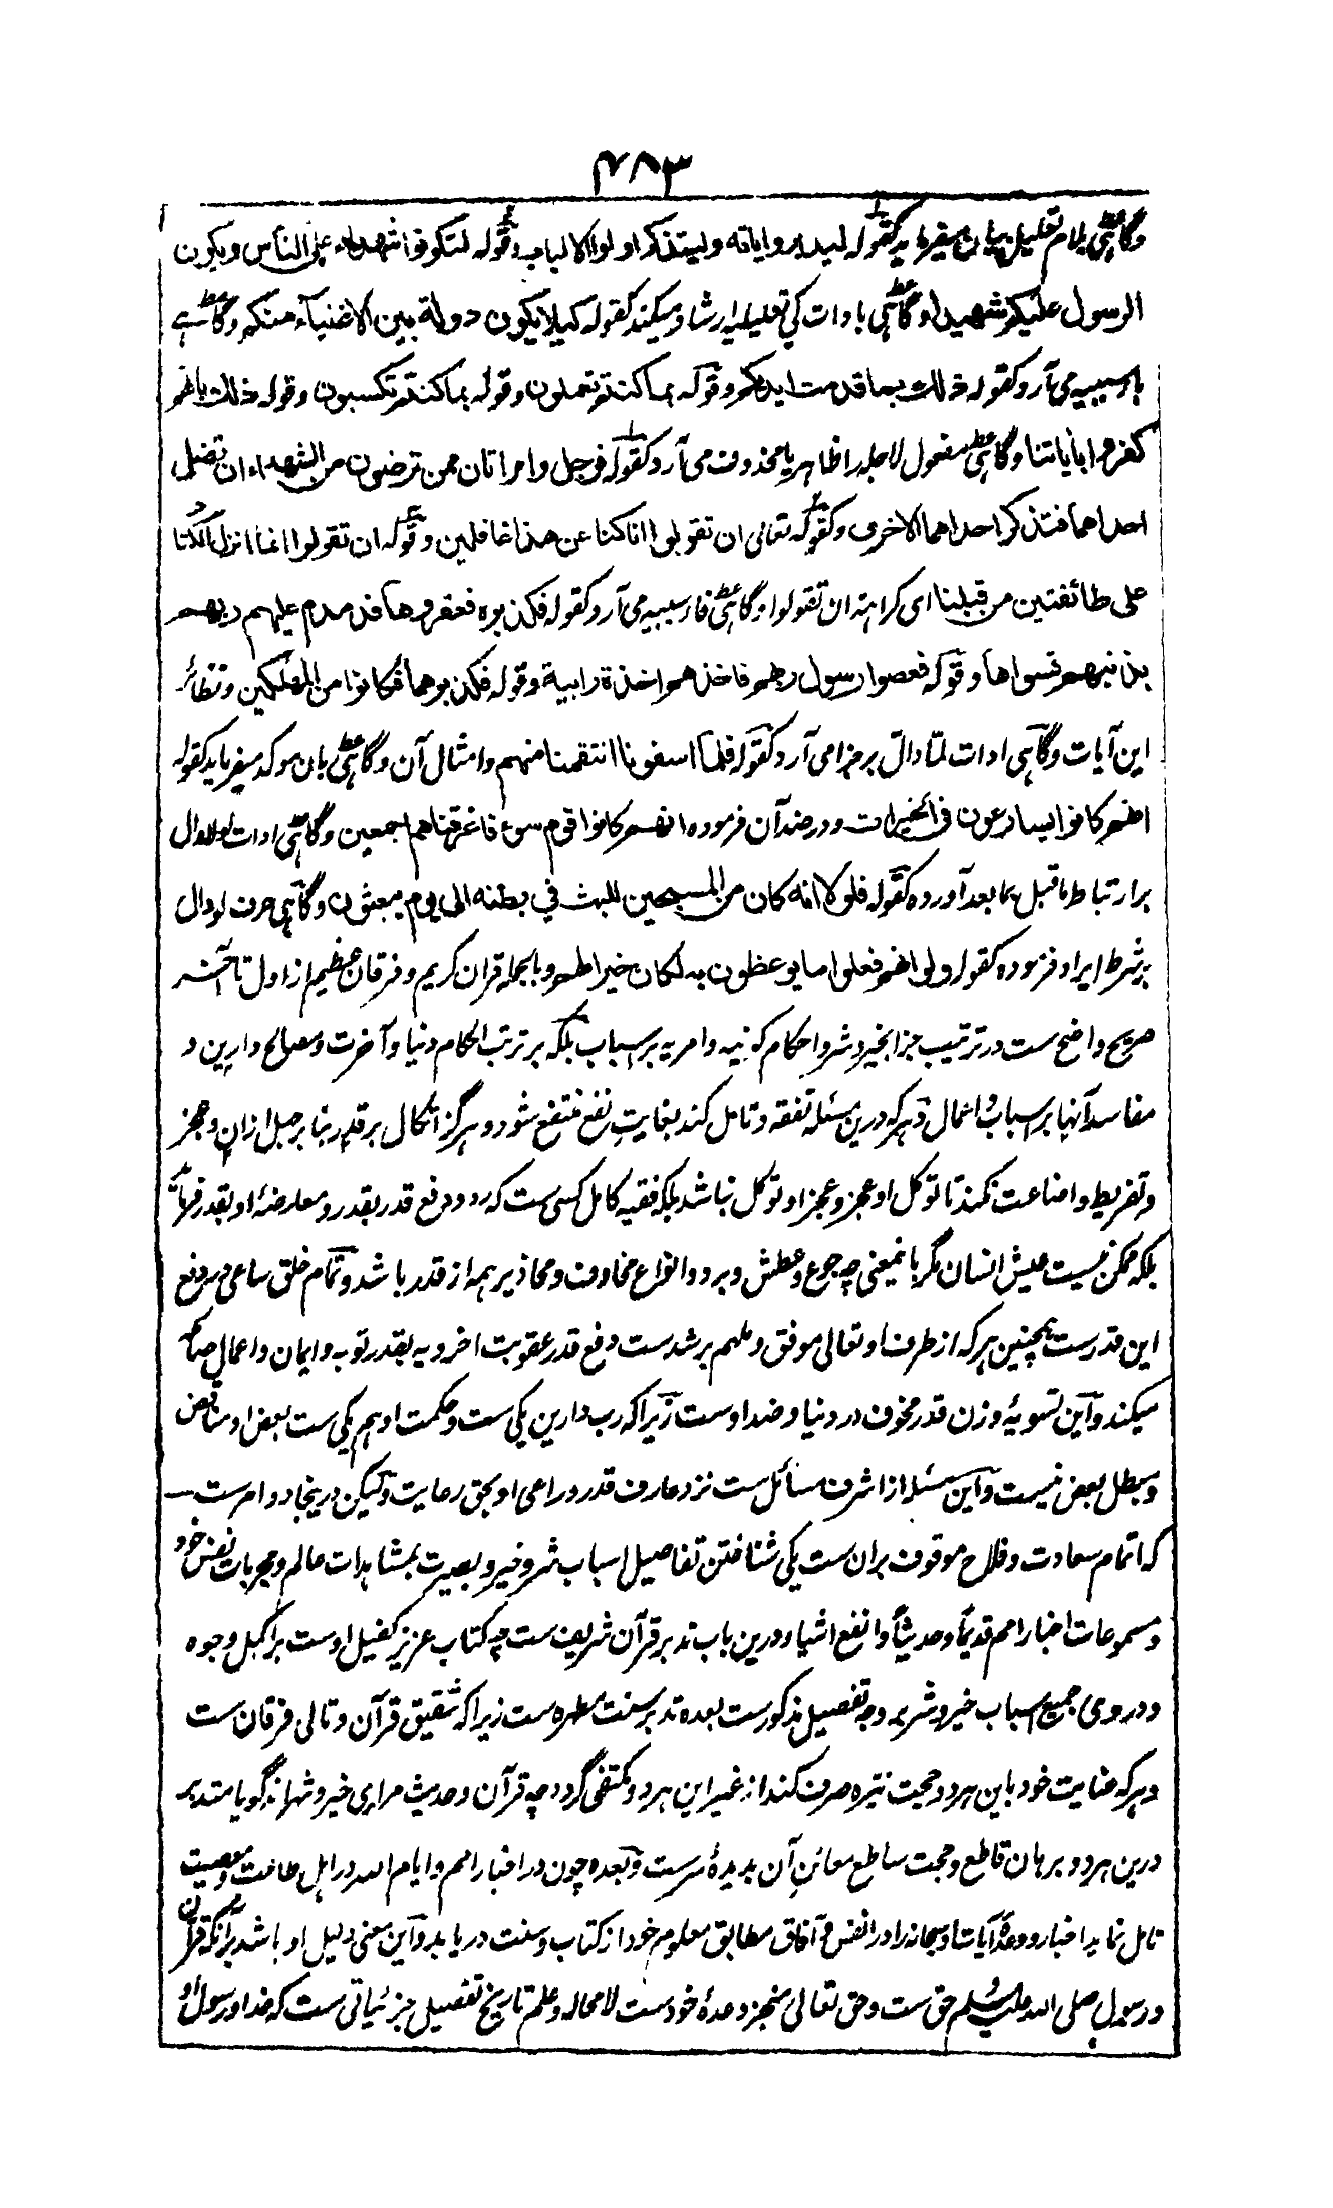 ۴۸۳
وگاهی بلام تعلیل بیان میفرماید کقوله لیدبروا ایاته ولیتذکر اولوا الالباب وقوله لتکونوا شهداء علی الناس ویکون
الرسول علیکم شهیدا وگاهی بادات کی تعلیلیه ارشاد میکند کقوله کیلا یکون دولة بین الاغنیاء منکم وگاهی
باء سببیه می آرد کقوله ذلک بما قدمت ایدیکم وقوله بما کنتم تعملون وقوله بما کنتم تکسبون وقوله ذلک بانهم
کفروا بایاتنا وگاهی مفعول لاجله را ظاهر یا محذوف می آرد کقوله فرجل وامراتان ممن ترضون من الشهداء ان تضل
احداهما فتذکر احداهما الاخری وکقوله تعالی ان تقولوا انا کنا عن هذا غافلین وقوله ان تقولوا انما انزل الکتاب
علی طائفتین من قبلنا ای کراهة ان تقولوا وگاهی فاء سببیه می آرد کقوله فکذبوه فعقروها فدمدم علیهم ربهم
بذنبهم فسواها وقوله فعصوا رسول ربهم فاخذهم اخذة رابیة وقوله فکذبوهما فکانوا من المهلکین ونظائر
این آیات وگاهی ادات لما دال بر جزا می آرد کقوله فلما اسفونا انتقمنا منهم وامثال آن وگاهی بان موکد میفرماید کقوله
انهم کانوا یسارعون فی الخیرات ودر ضد آن فرموده انهم کانوا قوم سوء فاغرقناهم اجمعین وگاهی ادات لولا دال
بر ارتباط ما قبل بما بعد آورده کقوله فلولا انه کان من المسبحین للبث فی بطنه الی یوم یبعثون وگاهی حرف لو دال
بر شرط ایراد فرموده کقوله ولو انهم فعلوا ما یوعظون به لکان خیرا لهم وبالجمله قران کریم وفرقان عظیم از اول تا آخر
صریح واضح ست در ترتیب جزا بخیر وشر واحکام کونیه وامریه بر اسباب بلکه بر ترتب احکام دنیا وآخرت ومصالح دارین و
مفاسد آنها بر اسباب واعمال وهر که درین مسئله تفقه وتامل کند بغایت نفع منتفع شود وهرگز اتکال بر قدر بنا بر جهل ازان وعجز
وتفریط واضاعت نکند تا توکل او عجز وعجز او توکل نباشد بلکه فقیه کامل کسی ست که رد ودفع قدر بقدر ومعارضهٔ او بقدر فرماید
بلکه ممکن نیست عیش انسان مگر باینمعنی چه جوع وعطش وبرد وانواع مخاوف ومحاذیر همه از قدر باشد وتمام خلق ساعی در دفع
این قدر ست همچنین هر که از طرف او تعالی موفق وملهم برشد ست دفع قدر عقوبت اخرویه بقدر توبه وایمان واعمال صالحه
میکند واین تسویهٔ وزن قدر مخوف در دنیا وضد اوست زیراکه رب دارین یکی ست وحکمت او هم یکی ست بعض او مناقض
ومبطل بعض نیست واین مسئله از اشرف مسائل ست نزد عارف قدر وراعی او بحق رعایت ولیکن درینجا دو امر ست
که اتمام سعادت وفلاح موقوف بران ست یکی شناختن تفاصیل اسباب شر وخیر وبصیرت بمشاهدات عالم ومجربات نفس خود
ومسموعات اخبار امم قدیما وحدیثا وانفع اشیا درین باب تدبر قرآن شریف ست چه کتاب عزیز کفیل اوست بر اکمل وجوه
ودر وی جمیع اسباب خیر وشر بوجه تفصیل مذکور ست بعده تدبر سنت مطهره ست زیراکه شقیق قرآن وتالی فرقان ست
وهر که عنایت خود باین هر دو حجت نیره صرف کند از غیر این هر دو مکتفی گردد چه قرآن وحدیث مرایی خیر وشراند گویا متدبر
درین هر دو برهان قاطع وحجت ساطع معائن آن بدیدهٔ سر ست وبعده چون در اخبار امم وایام الله در اهل طاعت ومعصیت
تامل نماید اخبار ووعدهٔ آیات او سبحانه را در انفس وآفاق مطابق معلوم خود از کتاب وسنت دریابد واین معنی دلیل او باشد برآنکه قرآن
ورسول صلی الله علیه وسلم حق ست وحق تعالی منجز وعدهٔ خود ست لا محاله وعلم تاریخ تفصیل جزئیاتی ست که خدا ورسول او